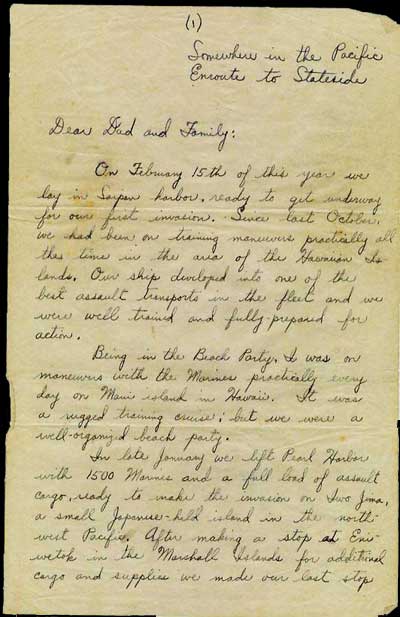 (1)
Somewhere in the Pacific
Enroute to Stateside
Dear Dad and Family:
On February 15th of this year we
lay in Saipan harbor, ready to get underway
for our first invasion. Since last October,
we had been on training maneuvers practically all
the time in the area of the Hawaiian Is-
lands. Our ship developed into one of the
best assault transports in the fleet and we
were well trained and fully-prepared for
action.
Being in the Beach Party, I was on
maneuvers with the Marines practically every
day on Maui island in Hawaii. It was
a rugged training cruise; but we were a
well-organized beach party.
In late January we left Pearl Harbor
with 1500 Marines and a full load of assault
cargo, ready to make the invasion on Iwo Jima,
a small Japanese-held island in the north-
west Pacific. After making a stop at Eni-
wetok in the Marshall Islands for additional
cargo and supplies we made our last stop